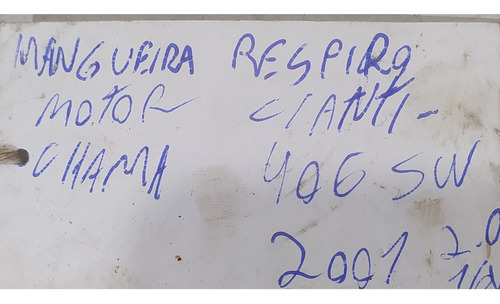 MANGUEIRA RESPIRO
MOTOR C/ANTI-
CHAMA 406 SW
2001 2.0